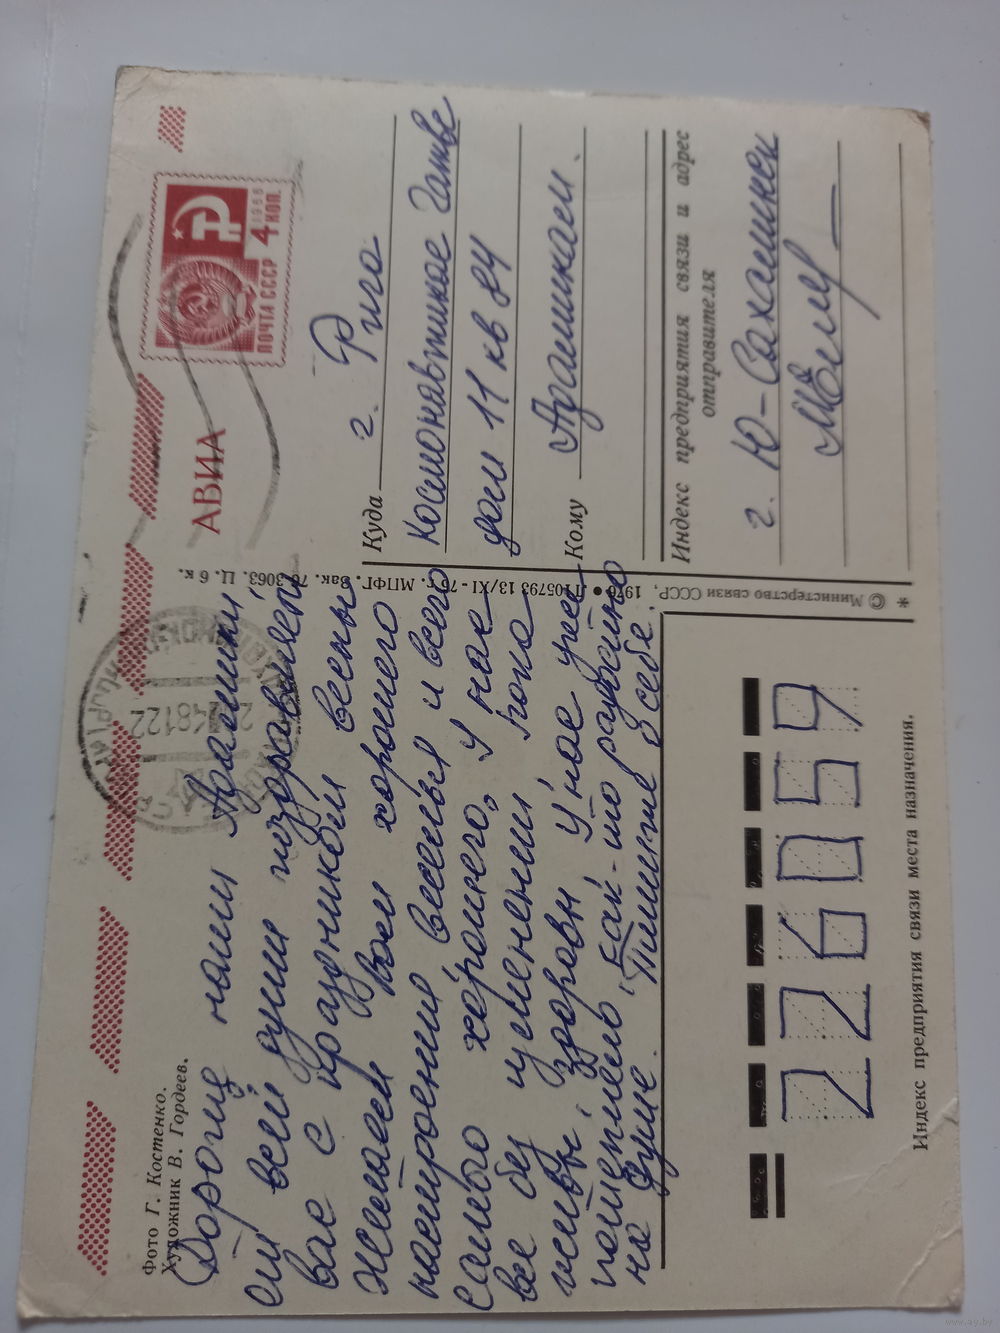 Фото Г. Костенко.
Художник В. Гордеев.
АВИА
ПОЧТА СССР
1966
4 КОП.
Дорогие наши
от всей души поздравляем
вас с праздником весны
желаем вам хорошего
настроения веселья и всего
самого хорошего. У нас
все без изменений пока
живы, здоровы У нас уже
потеплело как-то радостно
на душе. Пишите о себе
Куда г. Рига
Космонавтикас Гатве
дом 11 кв 84
Кому
Индекс предприятия связи и адрес
отправителя
г. Ю-Сахалинск
© Министерство связи СССР, 1976 • Л 105793 13/XI - 75 г. МПФГ. Зак. 76-3063. Ц. 6 к.
226059
Индекс предприятия связи места назначения.
www.ay.by